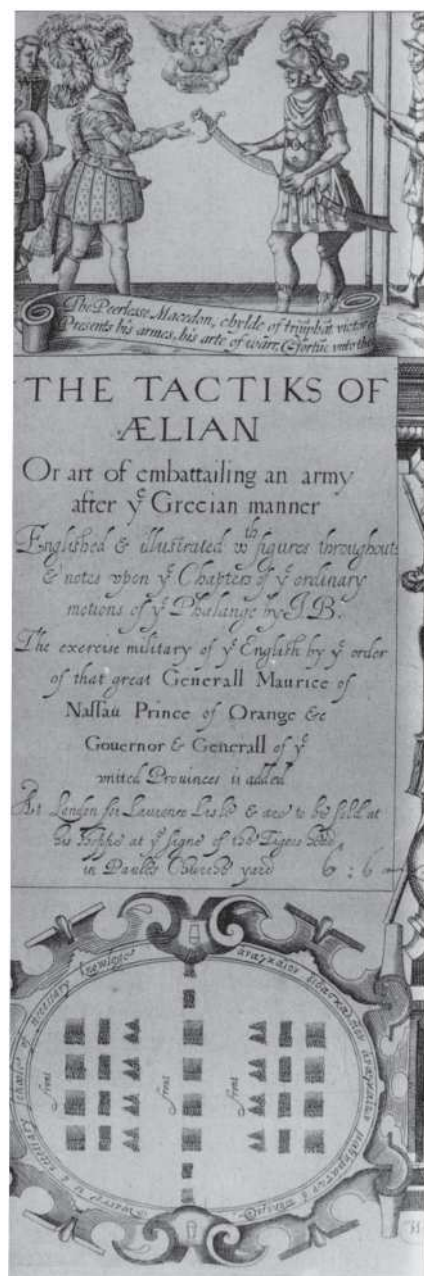 The Peerlesse Macedon, chylde of triũphãt victor
Presents his armes, his arte of warr, & fortũe vnto the
THE TACTIKS OF
ÆLIAN
Or art of embattailing an army
after yᵉ Grecian manner
Englished & illustrated wᵗʰ figures throughout
& notes vpon yᵉ Chapters of yᵉ ordinary
motions of yᵉ Phalange by I. B.
The exercise military of yᵉ English by yᵉ order
of that great Generall Maurice of
Nassau Prince of Orange &c
Gouernor & Generall of yᵉ
vnited Prouinces is added
At London for Laurence Lisle & are to be sold at
his shoppe at yᵉ signe of the Tigers head
in Paules Church yard 6 : 6
Warre is a necessary schoole of necessary knowlege
ἀναγκαῖον
front
front
front